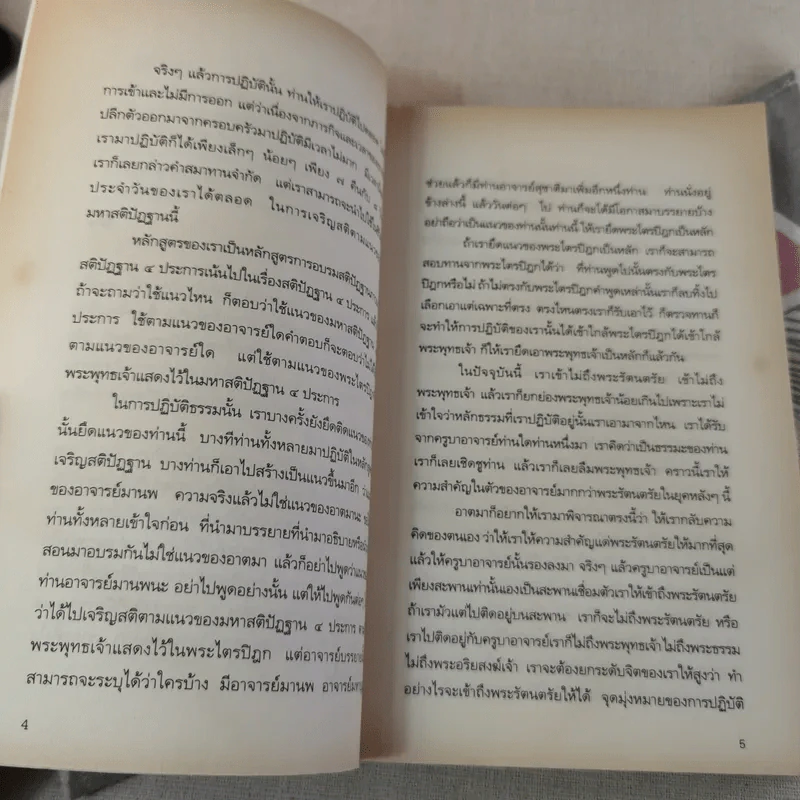 จริงๆ แล้วการปฏิบัตินั้น ท่านให้เราปฏิบัติไป
การเข้าและไม่มีการออก แต่ว่าเนื่องจากภารกิจและ
ปลีกตัวออกมาจากครอบครัวมาปฏิบัติมีเวลาไม่มาก
เรามาปฏิบัติก็ได้เพียงเล็กๆ น้อยๆ เพียง ๗ คืนกับ
เราก็เลยกล่าวคำสมาทานจำกัด แต่เราสามารถจะนำไปใช้
ประจำวันของเราได้ตลอด ในการเจริญสติตามแนว
มหาสติปัฏฐานนี้
หลักสูตรของเราเป็นหลักสูตรการอบรมสติปัฏฐาน
สติปัฏฐาน ๔ ประการเน้นไปในเรื่องสติปัฏฐาน ๔ ประการ
ถ้าจะถามว่าใช้แนวไหน ก็ตอบว่าใช้แนวของมหาสติปัฏฐาน
ประการ ใช้ตามแนวของอาจารย์ใดคำตอบก็จะตอบว่าไม่
ตามแนวของอาจารย์ใด แต่ใช้ตามแนวของพระไตรปิฎก
พระพุทธเจ้าแสดงไว้ในมหาสติปัฏฐาน ๔ ประการ
ในการปฏิบัติธรรมนั้น เราบางครั้งยังยึดติดแนวของ
นั้นยึดแนวของท่านนี้ บางทีท่านทั้งหลายมาปฏิบัติในหลัก
เจริญสติปัฏฐาน บางท่านก็เอาไปสร้างเป็นแนวขึ้นมาอีก
ของอาจารย์มานพ ความจริงแล้วไม่ใช่แนวของอาตมานะ
ท่านทั้งหลายเข้าใจก่อน ที่นำมาบรรยายที่นำมาอธิบายหรือ
สอนมาอบรมกันไม่ใช่แนวของอาตมา แล้วก็อย่าไปพูดว่า
ท่านอาจารย์มานพนะ อย่าไปพูดอย่างนั้น แต่ให้ไปพูดกันต่อๆ
ว่าได้ไปเจริญสติตามแนวของมหาสติปัฏฐาน ๔ ประการ
พระพุทธเจ้าแสดงไว้ในพระไตรปิฎก แต่อาจารย์บรรยาย
สามารถจะระบุได้ว่าใครบ้าง มีอาจารย์มานพ อาจารย์
4
ช่วยแล้วก็มีท่านอาจารย์สุชาติมาเพิ่มอีกหนึ่งท่าน ท่านนั่งอยู่
ข้างล่างนี้ แล้ววันต่อๆ ไป ท่านก็จะได้มีโอกาสมาบรรยายบ้าง
อย่าถือว่าเป็นแนวของท่านนั้นท่านนี้ ให้เรายึดพระไตรปิฎกเป็นหลัก
ถ้าเรายึดแนวของพระไตรปิฎกเป็นหลัก เราก็จะสามารถ
สอบทานจากพระไตรปิฎกได้ว่า ที่ท่านพูดไปนั้นตรงกับพระไตร
ปิฎกหรือไม่ ถ้าไม่ตรงกับพระไตรปิฎกคำพูดเหล่านั้นเราก็ลบทิ้งไป
เลือกเอาแต่เฉพาะที่ตรง ตรงไหนตรงเราก็รับเอาไว้ ก็ตรวจทานก็
จะทำให้การปฏิบัติของเรานั้นได้เข้าใกล้พระไตรปิฎกได้เข้าใกล้
พระพุทธเจ้า ก็ให้เรายึดเอาพระพุทธเจ้าเป็นหลักก็แล้วกัน
ในปัจจุบันนี้ เราเข้าไม่ถึงพระรัตนตรัย เข้าไม่ถึง
พระพุทธเจ้า แล้วเราก็ยกย่องพระพุทธเจ้าน้อยเกินไปเพราะเราไม่
เข้าใจว่าหลักธรรมที่เราปฏิบัติอยู่นั้นเราเอามาจากไหน เราได้รับ
จากครูบาอาจารย์ท่านใดท่านหนึ่งมา เราคิดว่าเป็นธรรมะของท่าน
เราก็เลยเชิดชูท่าน แล้วเราก็เลยลืมพระพุทธเจ้า คราวนี้เราให้
ความสำคัญในตัวของอาจารย์มากกว่าพระรัตนตรัยในยุคหลังๆ นี้
อาตมาก็อยากให้เรามาพิจารณาตรงนี้ว่า ให้เรากลับความ
คิดของตนเอง ว่าให้เราให้ความสำคัญแต่พระรัตนตรัยให้มากที่สุด
แล้วให้ครูบาอาจารย์นั้นรองลงมา จริงๆ แล้วครูบาอาจารย์เป็นแต่
เพียงสะพานเท่านั้นเองเป็นสะพานเชื่อมตัวเราให้เข้าถึงพระรัตนตรัย
ถ้าเรามัวแต่ไปติดอยู่บนสะพาน เราก็จะไม่ถึงพระรัตนตรัย หรือ
เราไปติดอยู่กับครูบาอาจารย์เราก็ไม่ถึงพระพุทธเจ้าไม่ถึงพระธรรม
ไม่ถึงพระอริยสงฆ์เจ้า เราจะต้องยกระดับจิตของเราให้สูงว่า ทำ
อย่างไรจะเข้าถึงพระรัตนตรัยให้ได้ จุดมุ่งหมายของการปฏิบัติ
5